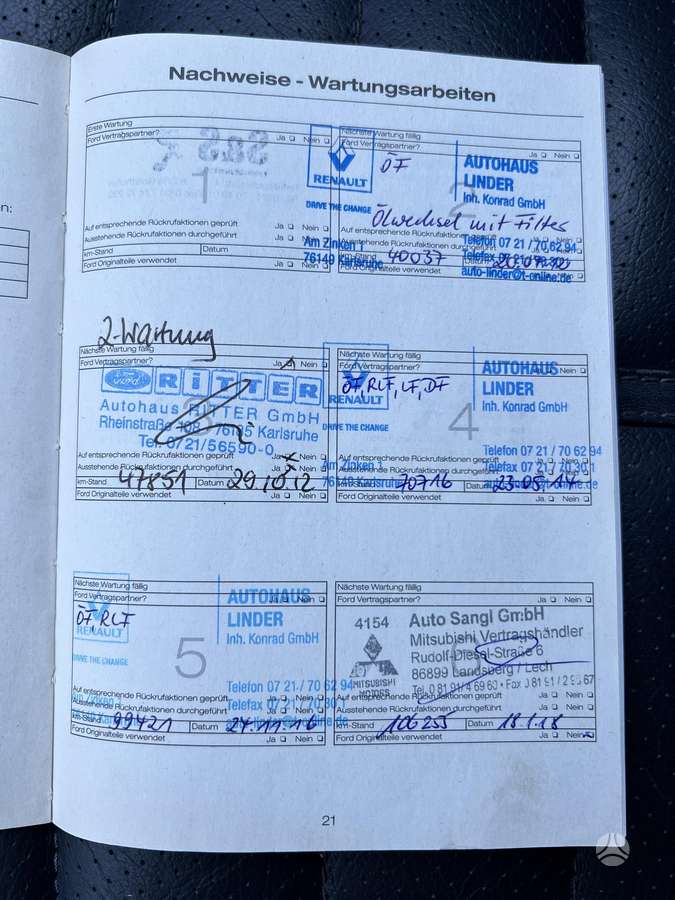 Nachweise - Wartungsarbeiten
Erste Wartung
Ford Vertragspartner? Ja Nein
1
Auf entsprechende Rückrufaktionen geprüft Ja Nein
Ausstehende Rückrufaktionen durchgeführt Ja Nein
km-Stand Datum
Ford Originalteile verwendet Ja Nein
Nächste Wartung fällig
Ford Vertragspartner? Ja Nein
ÖF
RENAULT
DRIVE THE CHANGE
AUTOHAUS
LINDER
Inh. Konrad GmbH
2
Ölwechsel mit Filter
Am Zinken 1
76149 Karlsruhe
Telefon 07 21 / 70 62 94
auto-linder@t-online.de
Auf entsprechende Rückrufaktionen
km-Stand 40037 Datum
Ford Originalteile verwendet
2-Wartung
Nächste Wartung fällig
Ford Vertragspartner? Ja Nein
Ford RITTER
Autohaus RITTER GmbH
Rheinstraße 108 76185 Karlsruhe
Tel. 0721/56590-0
Auf entsprechende Rückrufaktionen geprüft Ja Nein
Ausstehende Rückrufaktionen durchgeführt Ja Nein
km-Stand 47851 Datum 29.10.12
Ford Originalteile verwendet Ja Nein
Nächste Wartung fällig
Ford Vertragspartner? Nein
ÖF, RLF, LF, DF
RENAULT
DRIVE THE CHANGE
AUTOHAUS
LINDER
Inh. Konrad GmbH
4
Telefon 07 21 / 70 62 94
Am Zinken 1
76149 Karlsruhe
Auf entsprechende Rückrufaktionen geprüft
Ausstehende Rückrufaktionen durchgeführt
70716 Datum 23.05.14
Ford Originalteile verwendet Ja Nein
Nächste Wartung fällig
Ford Vertragspartner? Ja Nein
ÖF, RLF
RENAULT
DRIVE THE CHANGE
AUTOHAUS
LINDER
Inh. Konrad GmbH
5
Telefon 07 21 / 70 62 94
Auf entsprechende Rückrufaktionen geprüft
Ausstehende Rückrufaktionen durchgeführt
km-Stand 99421 Datum 24.11.16
Ford Originalteile verwendet Ja Nein
Nächste Wartung fällig
Ford Vertragspartner? Ja Nein
4154
MITSUBISHI
MOTORS
Auto Sangl GmbH
Mitsubishi Vertragshändler
Rudolf-Diesel-Straße 6
86899 Landsberg / Lech
Auf entsprechende Rückrufaktionen geprüft Ja Nein
Ausstehende Rückrufaktionen durchgeführt Ja Nein
km-Stand 106255 Datum 18.1.18
Ford Originalteile verwendet Ja Nein
21